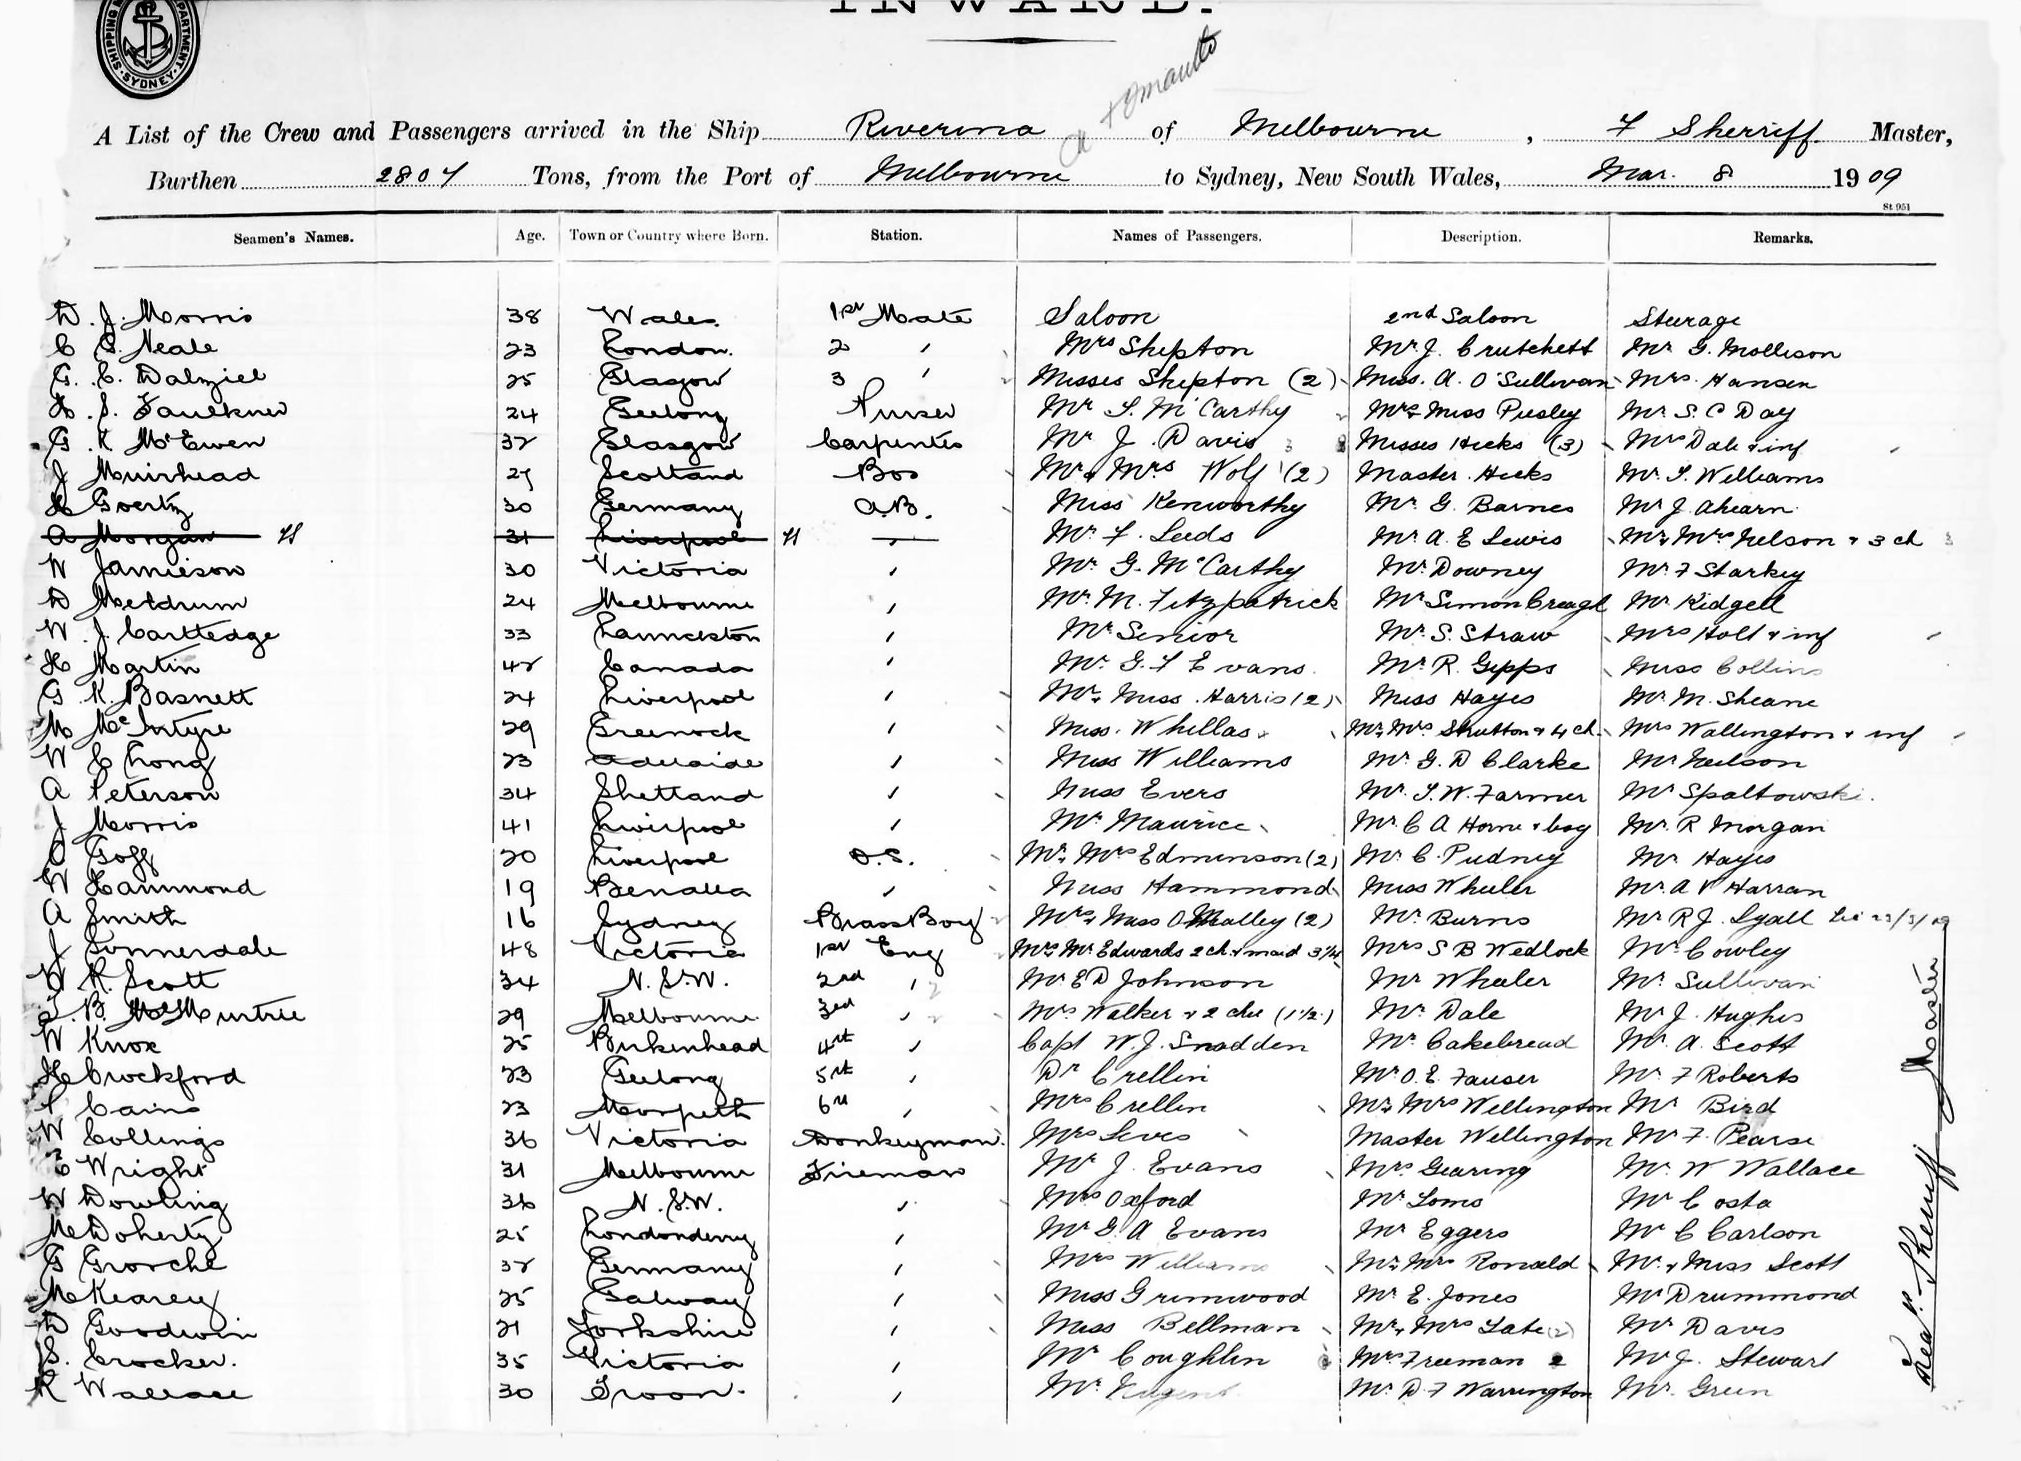 SHIPPING DEPARTMENT SYDNEY
INWARD.
A List of the Crew and Passengers arrived in the Ship Riverina of Melbourne, F Sherriff. Master,
Burthen 2804 Tons, from the Port of Melbourne to Sydney, New South Wales, Mar. 8 1909
St 951
Seamen's Names. Age. Town or Country where Born. Station. Names of Passengers. Description. Remarks.
D. J. Morris 38 Wales. 1st Mate Saloon 2nd Saloon Steerage
C G. Neale 23 London. 2 " Mrs Shepton Mr J. Crutchett Mr G. Mollison
G. C. Dalziel 25 Glasgow 3 " Misses Shepton (2) Miss. A. O'Sullivan Mrs. Hansen
H. S. Faulkner 24 Geelong Purser Mr T. McCarthy Mr & Miss Pusley Mr S C Day
G. K McEwen 32 Glasgow Carpenter Mr J. Davis Misses Hicks (3) Mrs Dale & inf
J Muirhead 29 Scotland Bos Mr & Mrs Wolf (2) Master Hicks Mr. T. Williams
H Goertz 30 Germany A.B. Miss Kenworthy Mr. G. Barnes Mr J. Ahearn
A Morgan 31 Liverpool " Mr F. Leeds Mr A. E Lewis Mr & Mrs Nelson & 3 ch
W Jamieson 30 Victoria " Mr. G. McCarthy Mr Downey Mr F Starkey
D Meldrum 24 Melbourne " Mr. M. Fitzpatrick Mr Simon Creagh Mr Kidgell
W. J. Cartledge 33 Launceston " Mr Senior Mr. S. Straw Mrs Holt & inf
H Martin 42 Canada " Mr. G. F Evans. Mr R. Gipps Miss Collins
G. K. Basnett 24 Liverpool " Mr & Miss. Harris (2) Miss Hayes Mr. M. Sheane
M McIntyre 29 Greenock " Miss. Whillas Mr & Mrs. Strutton & 4 ch. Mrs Wallington & inf
W C Long 23 Adelaide " Miss Williams Mr G. D Clarke Mr Neilson
A Peterson 34 Shetland " Miss Evers Mr. T. W. Farmer Mr Spaltowski.
J Morris 41 Liverpool " Mr Maurice Mr. C A Horne & boy Mr. R Morgan
Goff 20 Liverpool O.S. Mr & Mrs Edminson (2) Mr C. Pudney Mr Hayes
W Hammond 19 Benalla " Miss Hammond Miss Wheeler Mr. A V Harran
A Smith 16 Sydney Brass Boy Mrs & Miss O'Malley (2) Mr. Burns Mr R J. Lyall 23/3/09
J Sonnerdale 48 Victoria 1st Eng Mrs & Mr Edwards 2 ch & maid Mrs S B Wedlock Mr Cowley
W R. Scott 34 N. S.W. 2nd " Mr E D Johnson Mr Wheeler Mr. Sullivan
T. B. McMurtrie 29 Melbourne 3rd " Mrs Walker & 2 chn (1½) Mr Dale Mr J. Hughes
W Knox 25 Birkenhead 4th " Capt W. J. Snadden Mr Cakebread Mr. A. Scott
H Crockford 23 Geelong 5th " Dr Crellin Mr O. E. Fauser Mr. F Roberts
Cains 23 Morpeth 6th " Mrs Crellin Mr & Mrs Wellington Mr Bird
W Collings 36 Victoria Donkeyman. Mrs Leves Master Wellington Mr F. Pearse
E Wright 31 Melbourne Fireman Mr J. Evans Mrs Gearing Mr. W Wallace
W Dowling 36 N. S.W. " Mrs Oxford Mr Loms Mr Costa
M Doherty 25 Londonderry " Mr G A Evans Mr Eggers Mr C Carlson
G Grorche 32 Germany " Mrs Williams Mr & Mrs Ronald Mr. & Miss Scott
M Kearey 25 Galway " Miss Grimwood Mr E. Jones Mr Drummond
D Goodwin 21 Yorkshire " Miss Bellman Mr & Mrs Tate (2) Mr Davis
S. Crocker. 35 Victoria " Mr Coughlin Mrs Freeman 2 Mr J. Stewart
R Wallace 30 Troon. " Mr. Nugent Mr. D F Warrington Mr. Green
Sherriff Master